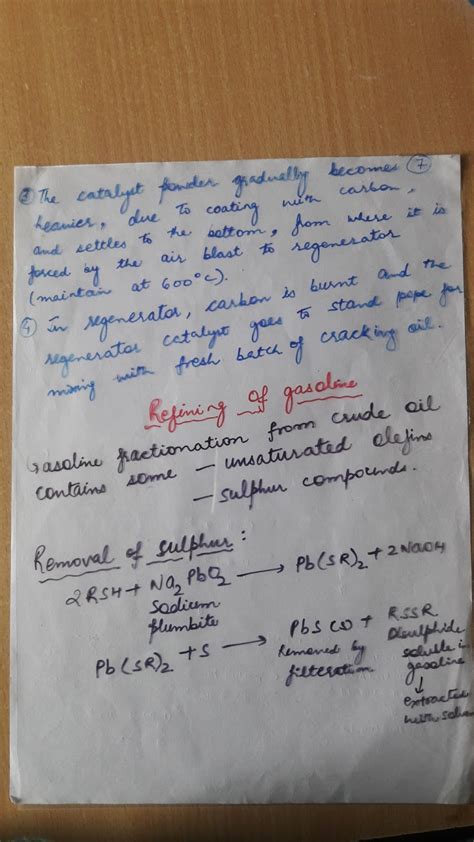 ③ The catalyst powder gradually becomes ⑦
heavier, due to coating with carbon,
and settles to the bottom, from where it is
forced by the air blast to regenerator
(maintain at 600°C).
④ In regenerator, carbon is burnt and the
regenerator catalyst goes to stand pipe for
mixing with fresh batch of cracking oil.
Refining of gasoline
Gasoline fractionation from crude oil
contains some – unsaturated olefins
– sulphur compounds.
Removal of sulphur :
2RSH + Na2PbO2 → Pb(SR)2 + 2NaOH
sodium
plumbite
Pb(SR)2 + S → PbS (s) + RSSR
Removed by filteration
Disulphide soluble in gasoline
↓
extracted
with